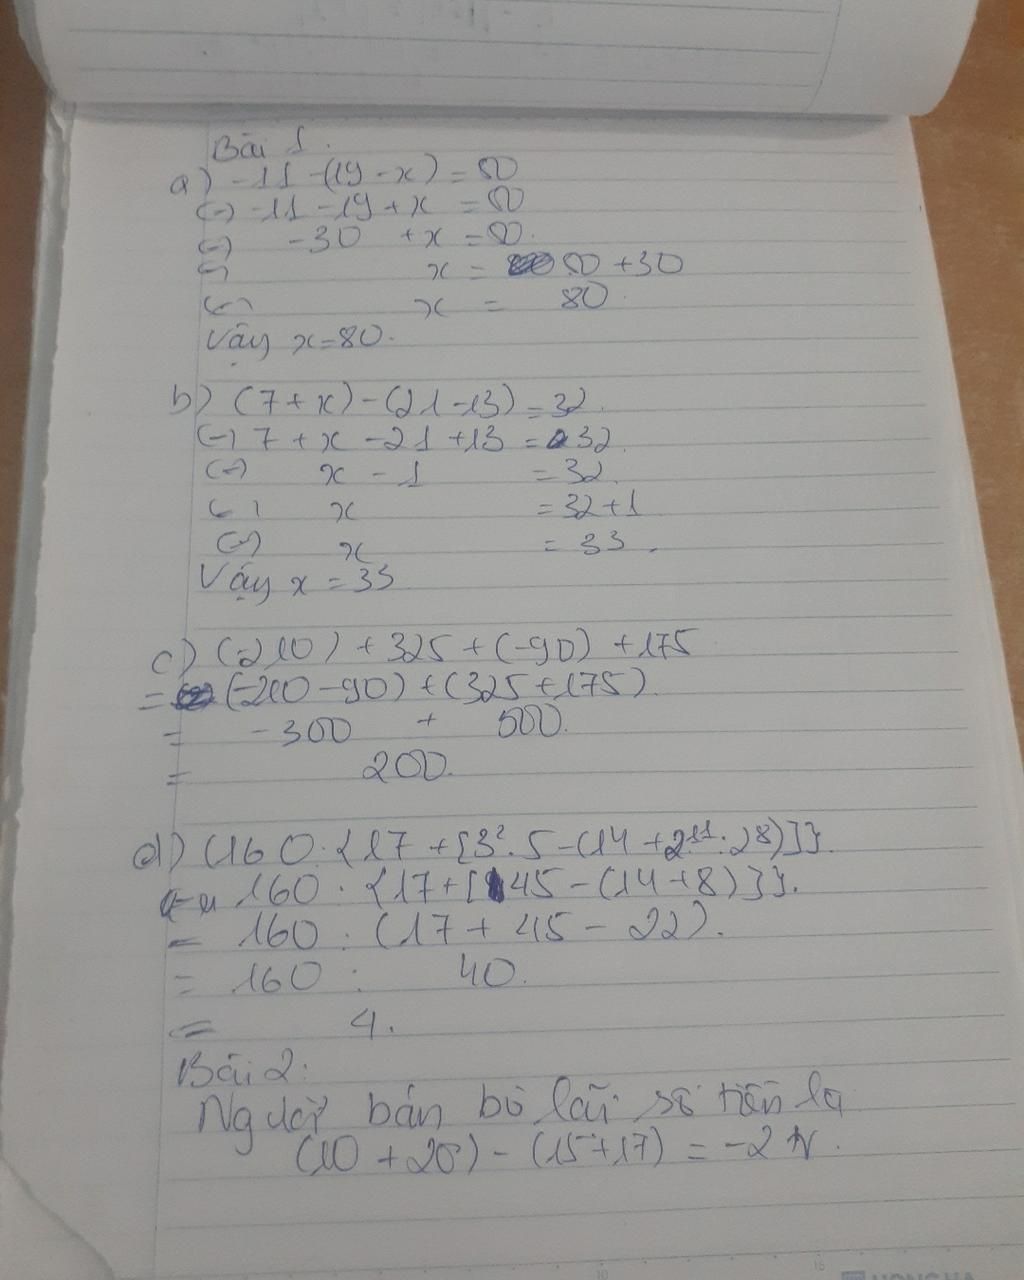 Bài 1.
a) -11 -(19 - x) = 50
(=) -11 - 19 + x = 50
(=) -30 + x = 50.
(=) x = 50 + 30
(=) x = 80.
Vậy x = 80.
b) (7 + x) - (21 - 13) = 32.
(=) 7 + x - 21 + 13 = 32.
(=) x - 1 = 32.
(=) x = 32 + 1
(=) x = 33.
Vậy x = 33
c) (-210) + 325 + (-90) + 175
= (-210 - 90) + (325 + 175).
= -300 + 500.
= 200.
d) (160 : {17 + [3². 5 - (14 + 2¹¹ : 2⁸)]}.
= 160 : {17 + [45 - (14 + 8)]}.
= 160 : (17 + 45 - 22).
= 160 : 40.
= 4.
Bài 2:
Người bán bò lãi số tiền là
(10 + 20) - (15 + 17) = -2 tr.